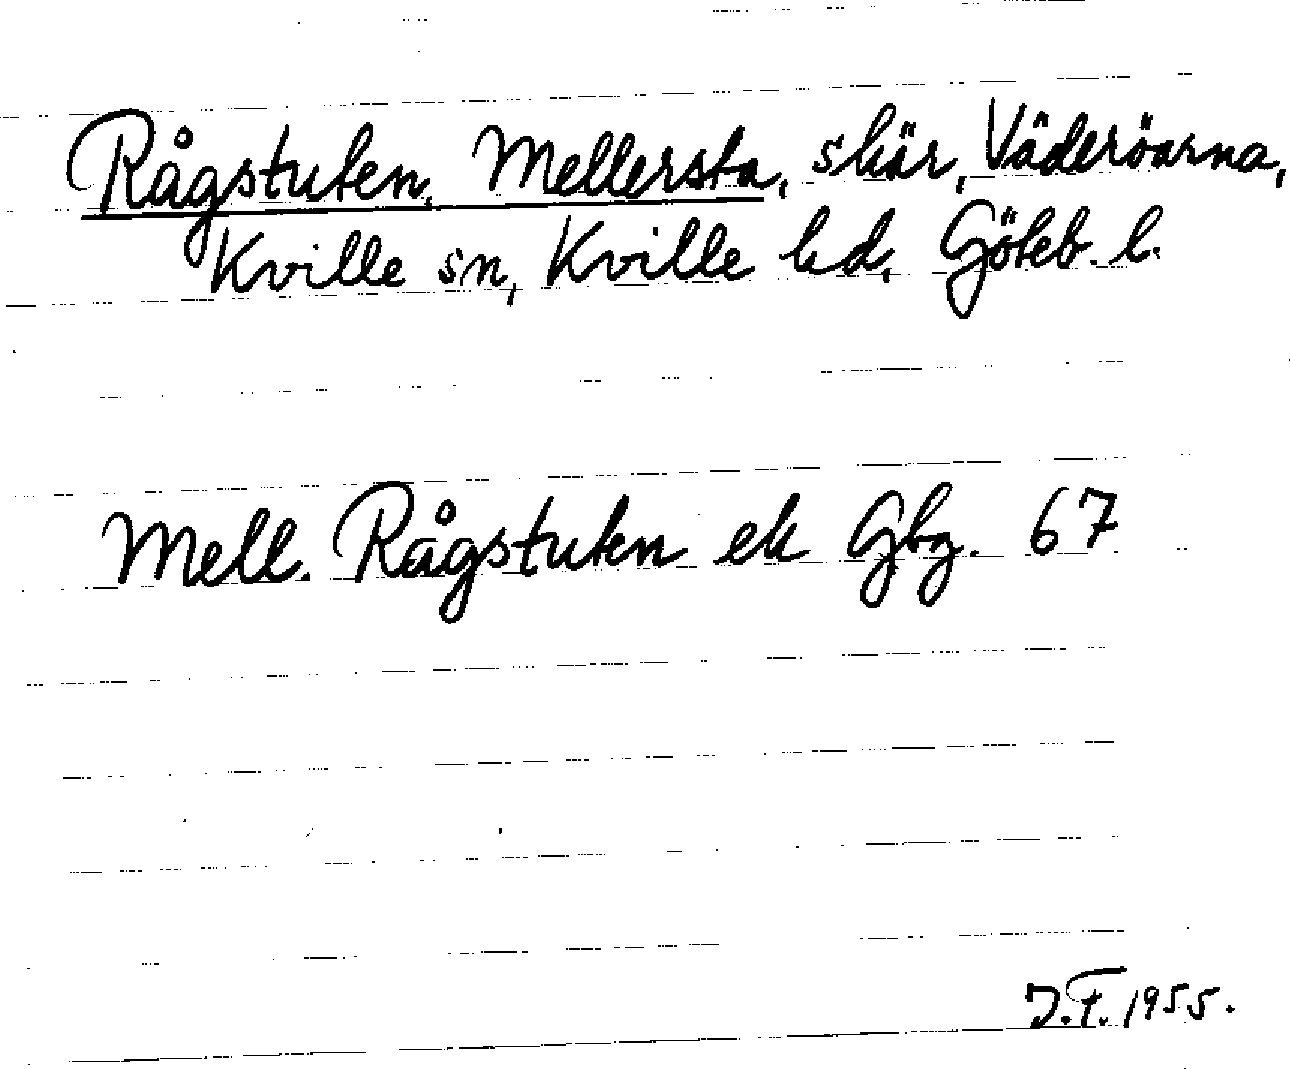 Rågstuten, Mellersta, skär, Väderöarna,
Kville sn, Kville hd, Göteb. l.
Mell. Rågstuten ek Gbg. 67
J.F. 1955.